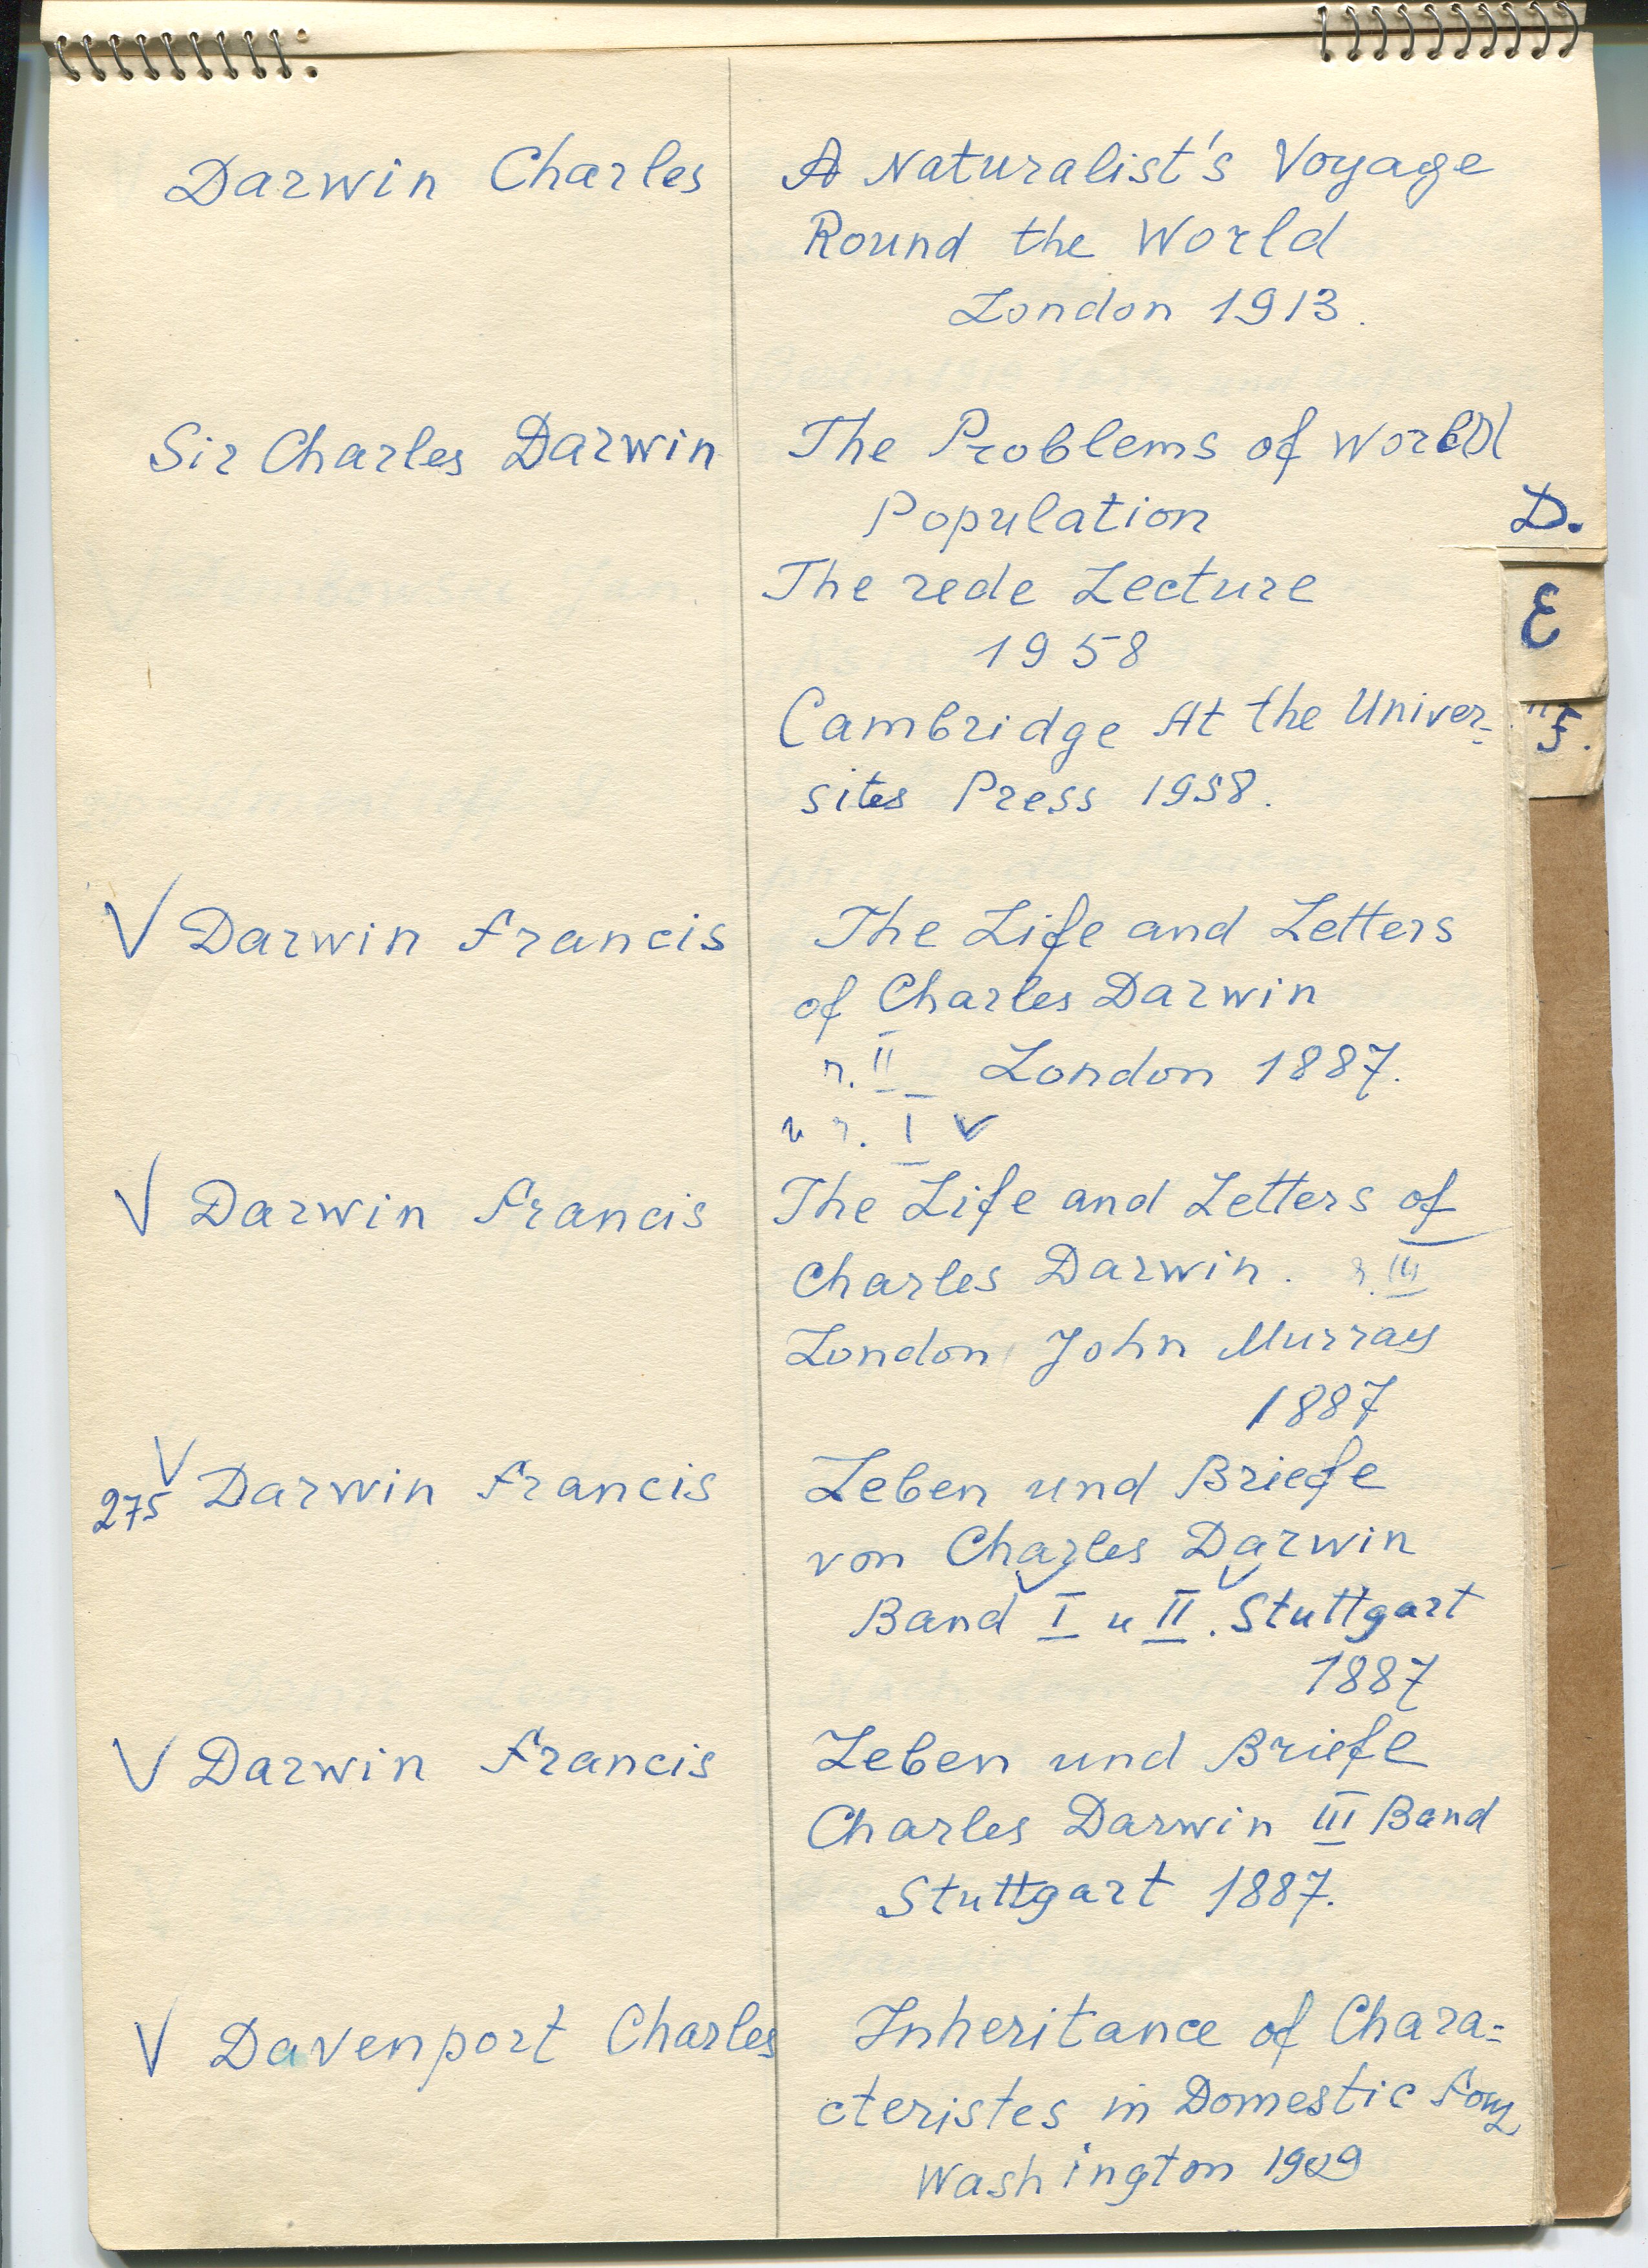 Darwin Charles
A Naturalist's Voyage
Round the World
London 1913.
Sir Charles Darwin
The Problems of World
Population
The rede Lecture
1958
Cambridge At the Univer=
sites Press 1958.
D.
E
V Darwin Francis
The Life and Letters
of Charles Darwin
т. II London 1887.
и т. I V
V Darwin Francis
The Life and Letters of
Charles Darwin. т. III
London John Murray
1887
V
275 Darwin Francis
Leben und Briefe
von Charles Darwin
V V
Band I u II. Stuttgart
1887
V Darwin Francis
Leben und Briefe
Charles Darwin III Band
Stuttgart 1887.
V Davenport Charles
Inheritance of Chara=
cteristes in Domestic
Washington